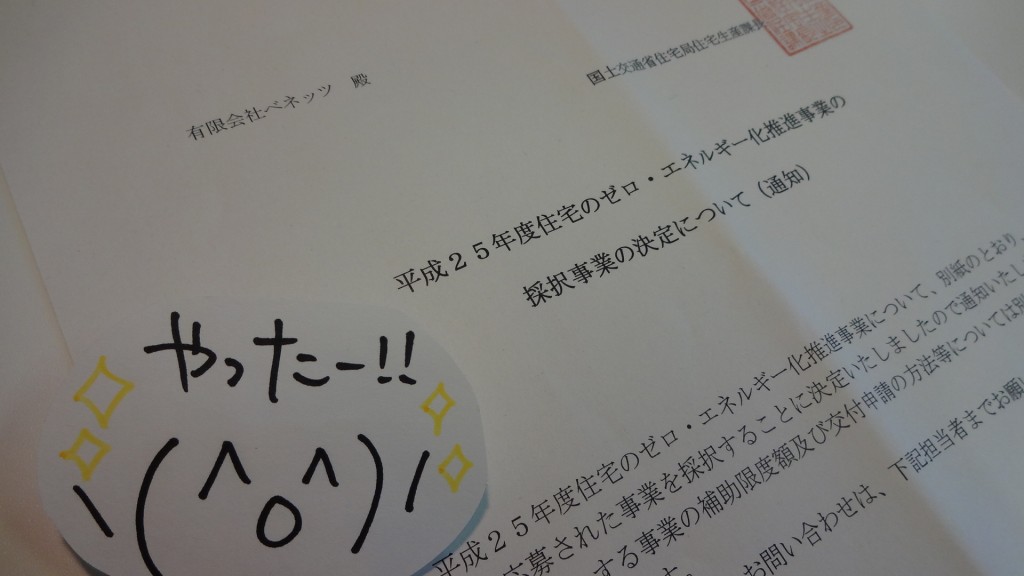 有限会社ベネッツ 殿
国土交通省住宅局住宅生産課長
平成25年度住宅のゼロ・エネルギー化推進事業の
採択事業の決定について(通知)
平成25年度住宅のゼロ・エネルギー化推進事業について、別紙のとおり、
応募された事業を採択することに決定いたしましたので通知いたし
する事業の補助限度額及び交付申請の方法等については別
す。
お問い合わせは、下記担当者までお願
やったー!!
\(^o^)/